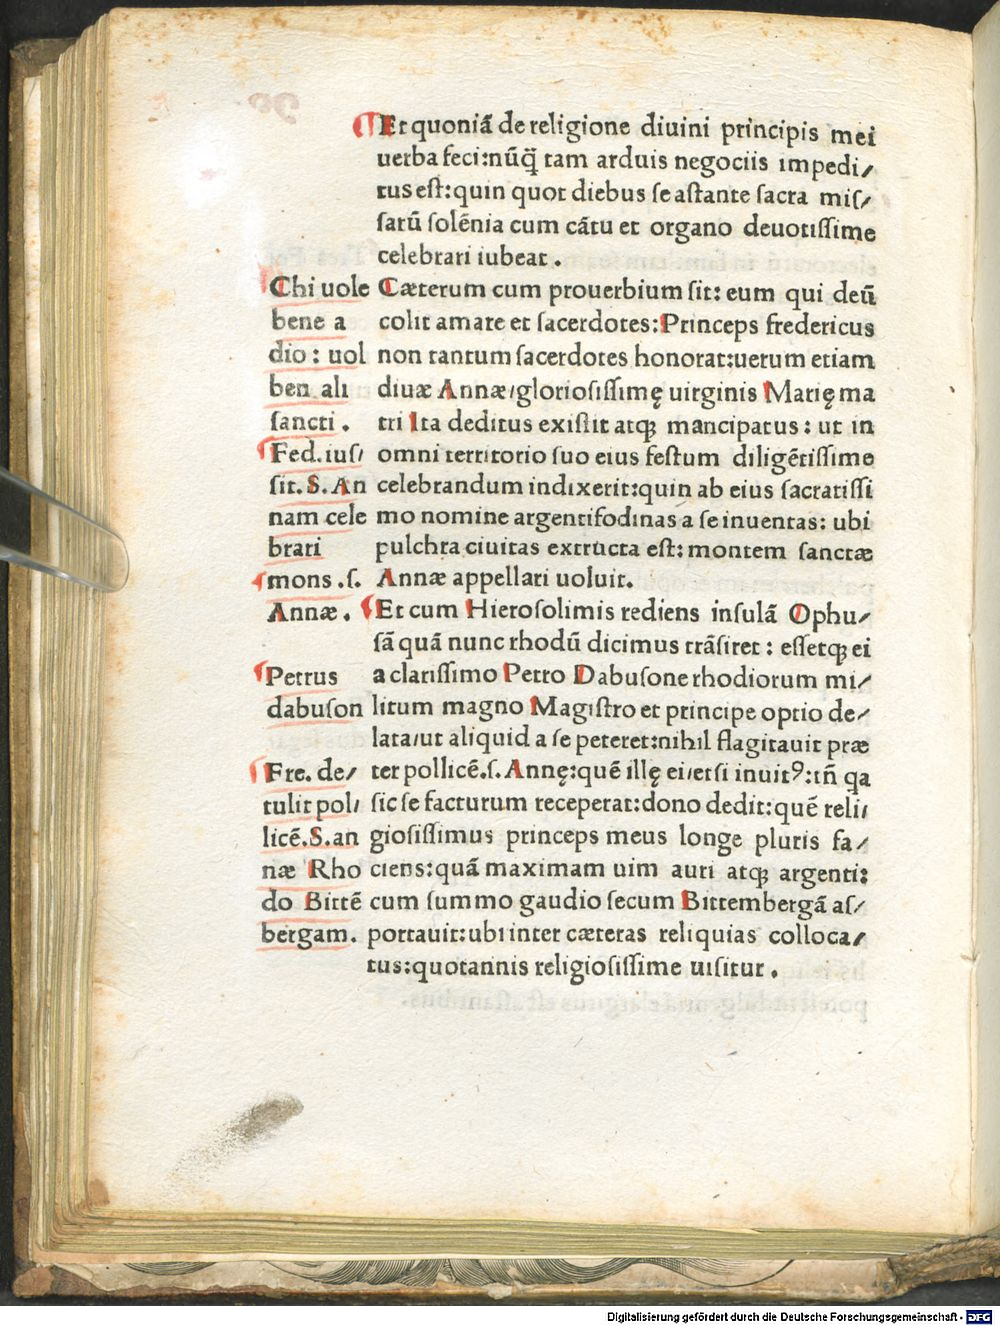 Et quoniā de religione diuini principis mei
uerba feci:nūq̄ tam arduis negociis impedi/
tus est:quin quot diebus se astante sacra mis/
sarū solēnia cum cātu et organo deuotissime
celebrari iubeat.
Cæterum cum prouerbium sit: eum qui deū
colit amare et sacerdotes:Princeps fredericus
non tantum sacerdotes honorat:uerum etiam
diuæ Annæ/gloriosissimę uirginis Marię ma
tri Ita deditus existit atqꝫ mancipatus: ut in
omni territorio suo eius festum diligētissime
celebrandum indixerit:quin ab eius sacratissi
mo nomine argentifodinas a se inuentas: ubi
pulchra ciuitas extructa est: montem sanctæ
Annæ appellari uoluit.
Et cum Hierosolimis rediens insulā Ophu/
sā quā nunc rhodū dicimus trāsiret: essetqꝫ ei
a clarissimo Petro Dabusone rhodiorum mi/
litum magno Magistro et principe optio de/
lata/ut aliquid a se peteret:nihil flagitauit præ
ter pollicē.s. Annę:quē illę ei/etsi inuitꝰ:tñ qa
sic se facturum receperat:dono dedit:quē reli/
giosissimus princeps meus longe pluris fa/
ciens:quā maximam uim auri atqꝫ argenti:
cum summo gaudio secum Bittembergā as/
portauit:ubi inter cæteras reliquias colloca/
tus:quotannis religiosissime uisitur.
Chi uole
bene a
dio: uol
ben ali
sancti.
Fed.ius/
sit.S.An
nam cele
brari
mons.s.
Annæ.
Petrus
dabuson
Fre. de/
tulit pol/
licē.S.an
næ Rho
do Bittē
bergam.
Digitalisierung gefördert durch die Deutsche Forschungsgemeinschaft - DFG